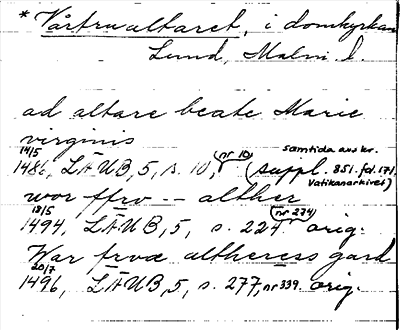 * Vårfrualtaret, i domkyrkan
Lund, Malm. l.
ad altare beate Marie
virginis
14/5 samtida avskr.
1486, LÄUB, 5, s. 10, (nr 10) (suppl. 851. fol. 171.
Vatikanarkivet)
wor ffrv -- alther
13/5
1494, LÄUB, 5, s. 224 (nr 274) orig.
War frvæ altheress gard
20/7
1496, LÄUB, 5, s. 277, nr 339. orig.